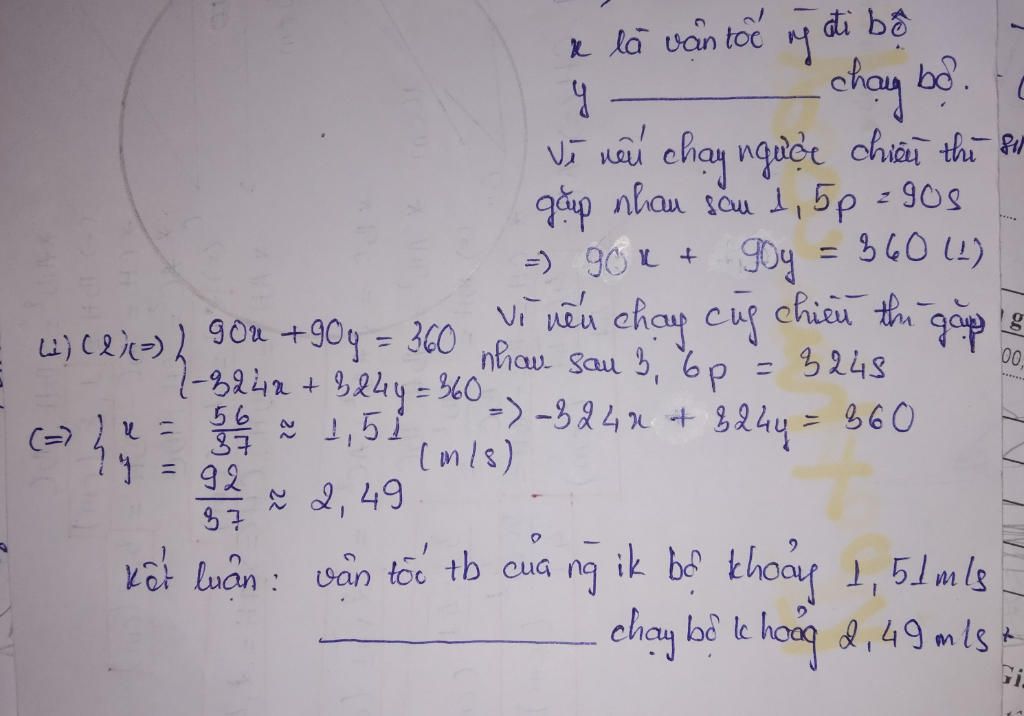 x là vận tốc ng̅ đi bộ
y ________ chạy bộ.
Vì nếu chạy ngược chiều thì
gặp nhau sau 1,5p = 90s
=> 90x + 90y = 360 (1)
Vì nếu chạy cùg chiều thì gặp
nhau sau 3,6p = 324s
=> -324x + 324y = 360
(1)(2)(=> { 90x + 90y = 360
-324x + 324y = 360
(=> { x = 56/37 ≈ 1,51
y = 92/37 ≈ 2,49
(m/s)
Kết luận: vận tốc tb của ng̅ ik bộ khoảg 1,51m/s
________ chạy bộ khoảg 2,49 m/s